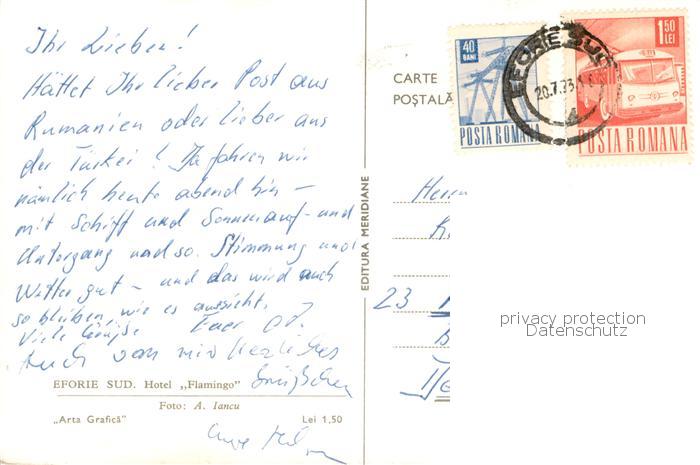 Ihr Lieben!
Hättet Ihr lieber Post aus
Rumänien oder lieber aus
der Türkei! Da fahren wir
nämlich heute abend hin –
mit Schiff und Sonnenauf- und
Untergang und so. Stimmung und
Wetter gut – und das wird auch
so bleiben, wie es aussieht.
Viele Grüsse Euer
Auch von mir herzliches
Grüßchen
EFORIE SUD. Hotel „Flamingo”
Foto: A. Iancu
„Arta Grafică” Lei 1,50
EDITURA MERIDIANE
CARTE
POȘTALĂ
40
BANI
POSTA ROMANA
1,50
LEI
POSTA ROMANA
EFORIE SUD
20.7.73
Herrn
23
privacy protection
Datenschutz